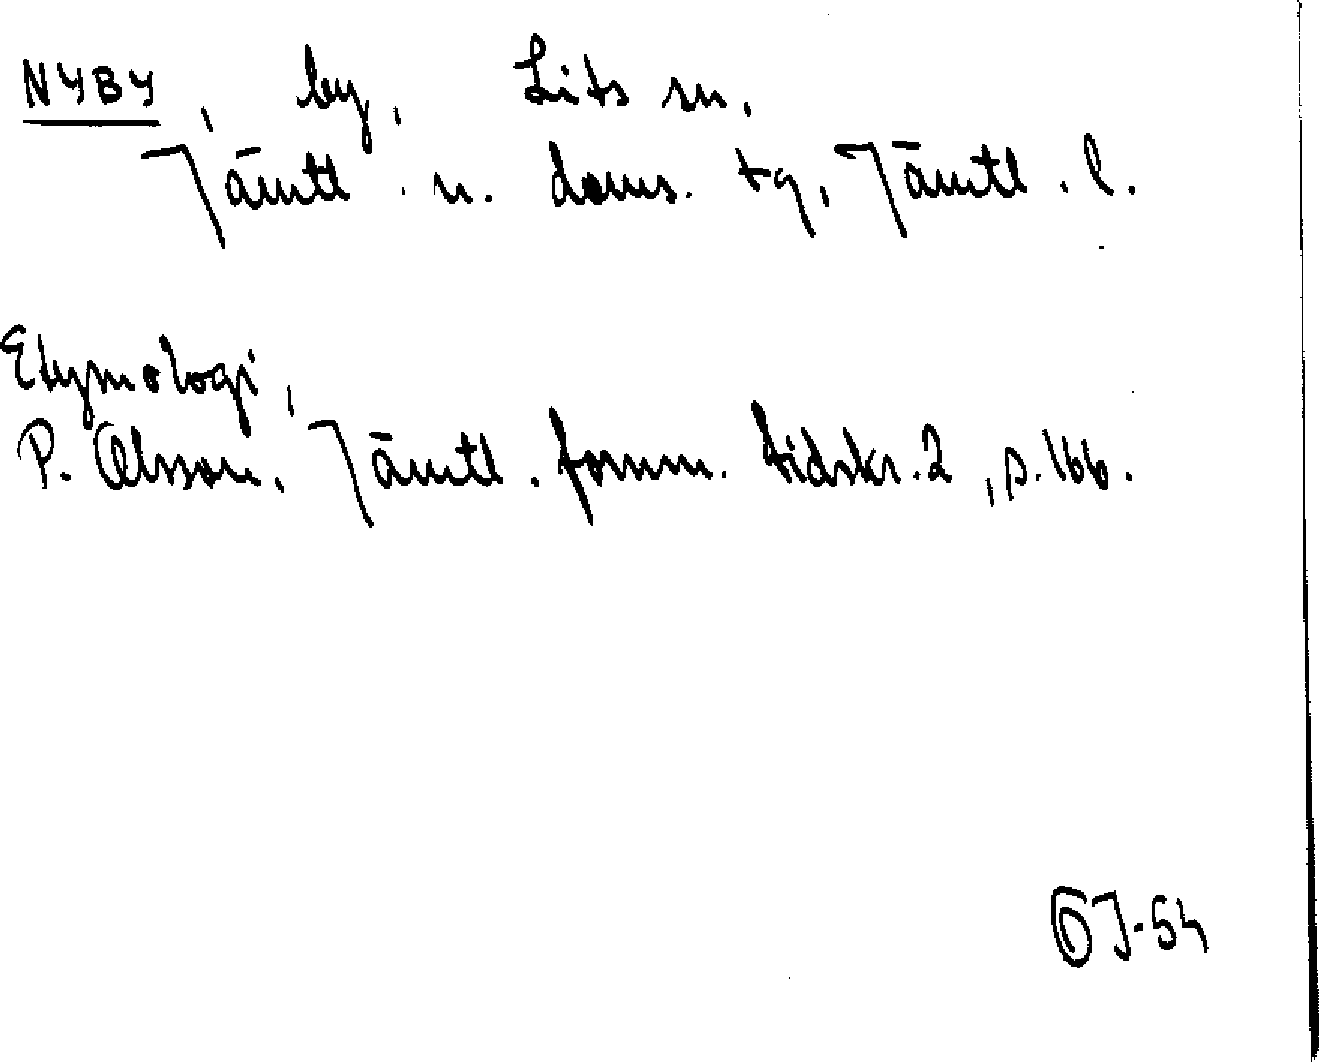 NYBY, by, Lits sn,
Jämtl. n. doms. tg, Jämtl. l.
Etymologi,
P. Olsson, Jämtl. fornm. tidskr. 2, s. 166.
ÖJ-54